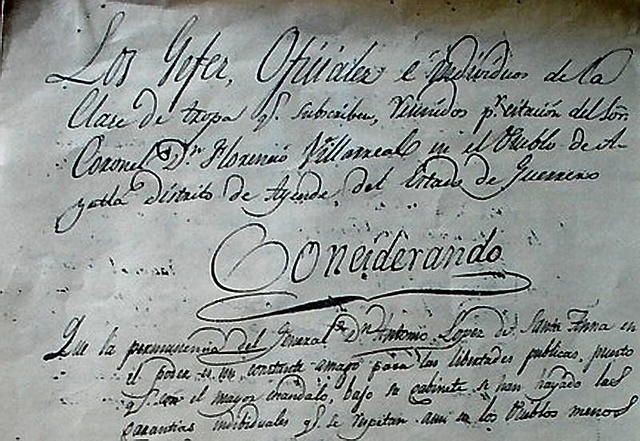 Los Gefes, Oficiales e individuos de la
Clase de tropa q.e subscriben, reunidos p.r citación del Sōr.
Coronel D.n Florencio Villarreal en el Pueblo de A-
yutla distrito de Ayende del Estado de Guerrero
Considerando
Que la permanencia del General D.n Antonio López de Santa Anna en
el poder es un constante amago para las libertades publicas, puesto
q.e con el mayor escandalo, bajo su cabinete se han hayado las
garantias individuales q.e se respetan aun en los Pueblos menos